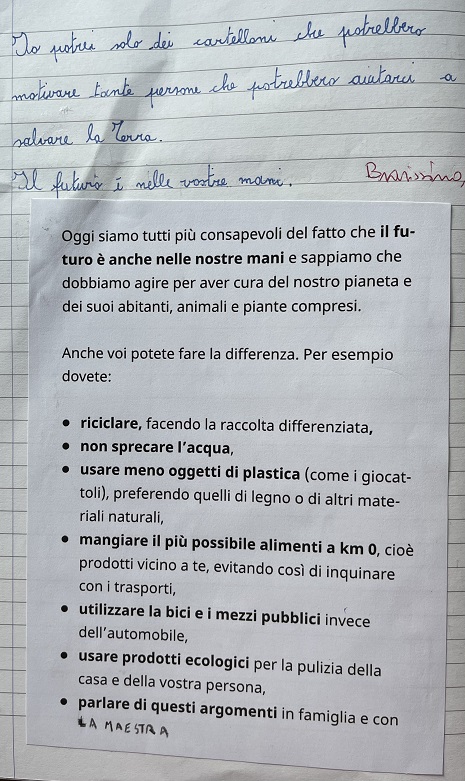 Io potrei solo dei cartelloni che potrebbero
motivare tante persone che potrebbero aiutarci a
salvare la Terra.
Il futuro è nelle vostre mani. Bravissimo,
Oggi siamo tutti più consapevoli del fatto che il fu-
turo è anche nelle nostre mani e sappiamo che
dobbiamo agire per aver cura del nostro pianeta e
dei suoi abitanti, animali e piante compresi.
Anche voi potete fare la differenza. Per esempio
dovete:
• riciclare, facendo la raccolta differenziata,
• non sprecare l'acqua,
• usare meno oggetti di plastica (come i giocat-
toli), preferendo quelli di legno o di altri mate-
riali naturali,
• mangiare il più possibile alimenti a km 0, cioè
prodotti vicino a te, evitando così di inquinare
con i trasporti,
• utilizzare la bici e i mezzi pubblici invece
dell'automobile,
• usare prodotti ecologici per la pulizia della
casa e della vostra persona,
• parlare di questi argomenti in famiglia e con
LA MAESTRA